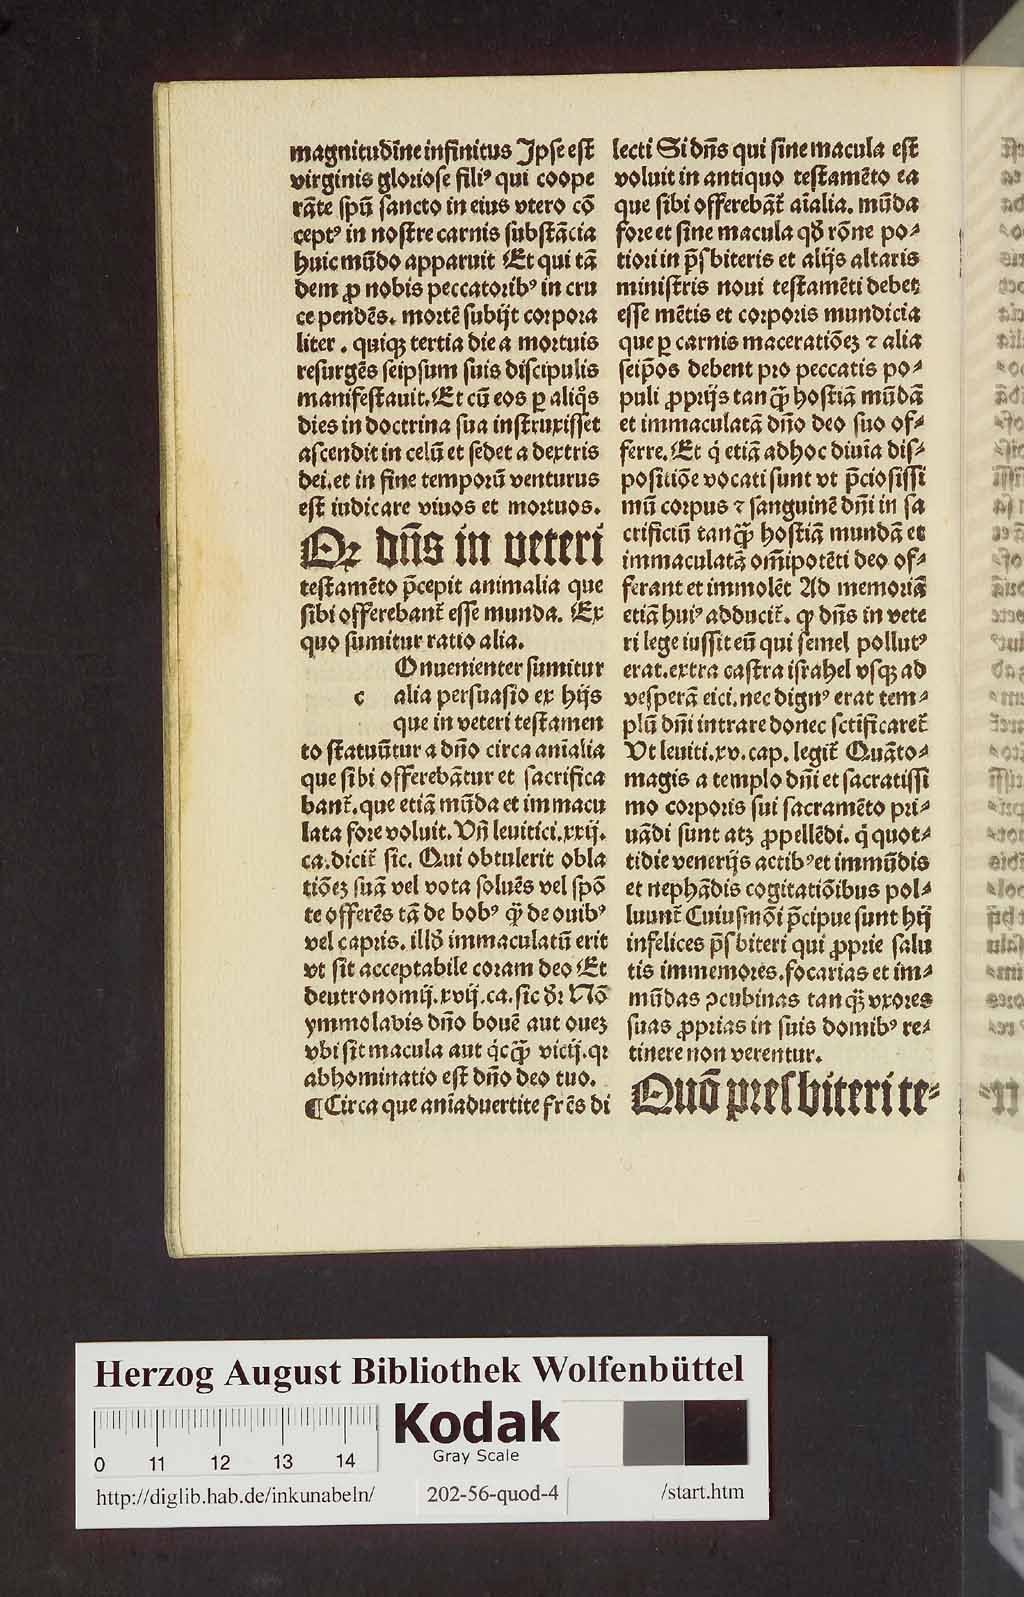 magnitudīne infinitus Jpse est
virginis gloriose filiꝰ qui coope
rāte spū sancto in eius vtero cō
ceptꝰ in nostre carnis substācia
huic mūdo apparuit Et qui tā
dem ꝓ nobis peccatoribꝰ in cru
ce pendēs. mortē subijt corpora
liter. quiqꝫ tertia die a mortuis
resurgēs seipsum suis discipulis
manifestauit. Et cū eos ꝑ aliq̄s
dies in doctrina sua instruxisset
ascendit in celū et sedet a dextris
dei. et in fine temporū venturus
est iudicare viuos et mortuos.
Qꝛ dn̄s in veteri
testamēto p̄cepit animalia que
sibi offerebant᷑ esse munda. Ex
quo sumitur ratio alia.
Onuenienter sumitur
c alia persuasio ex hijs
que in veteri testamen
to statuūtur a dn̄o circa aīalia
que sibi offerebātur et sacrifica
bant᷑. que etiā mūda et immacu
lata fore voluit. Vn̄ leuitici. xxij.
ca. dicit᷑ sic. Qui obtulerit obla
tiōeꝫ suā vel vota soluēs vel spō
te offerēs tā de bobꝰ q̄ꝫ de ouibꝰ
vel capris. illð immaculatū erit
vt sit acceptabile coram deo Et
deutronomij. xvij. ca. sic ðꝛ Nō
ymmolabis dn̄o bouē aut oueꝫ
vbi sit macula aut q̇cꝙ̄ vicij. qꝛ
abhominatio est dn̄o deo tuo.
¶ Circa que aīaduertite fr̄es di
lecti Si dn̄s qui sine macula est
voluit in antiquo testamēto ea
que sibi offerebāt᷑ aīalia. mūda
fore et sine macula qð rōne po⸗
tiori in p̄sbiteris et alijs altaris
ministris noui testamēti debet
esse mētis et corporis mundicia
que ꝑ carnis maceratiōeꝫ ⁊ alia
seip̄os debent pro peccatis po⸗
puli ꝓprijs tanꝙ̄ hostiā mūdā
et immaculatā dn̄o deo suo of⸗
ferre. Et q̇ etiā adhoc diuīa dis⸗
positiōe vocati sunt vt p̄ciosissi
mū corpus ⁊ sanguinē dn̄i in sa
crificiū tanꝙ̄ hostiā mundā et
immaculatā om̄ipotēti deo of⸗
ferant et immolēt Ad memoriā
etiā huiꝰ adducit᷑. ꝙ dn̄s in vete
ri lege iussit eū qui semel pollutꝰ
erat. extra castra israhel vsqꝫ ad
vesperā eici. nec dignꝰ erat tem⸗
plū dn̄i intrare donec sctificaret᷑
Vt leuiti. xv. cap. legit᷑ Quāto⸗
magis a templo dn̄i et sacratissi
mo corporis sui sacramēto pri⸗
uādi sunt atꝫ ꝓpellēdi. q̇ quot⸗
tidie venerijs actibꝰ et immūdis
et nephādis cogitatiōibus pol⸗
luunt᷑ Cuiusmōi p̄cipue sunt hij
infelices p̄sbiteri qui ꝓprie salu
tis immemores. focarias et im⸗
mūdas ꝯcubinas tanq̄ꝫ vxores
suas ꝓprias in suis domibꝰ re⸗
tinere non verentur.
Quō presbiteri te⸗
Herzog August Bibliothek Wolfenbüttel
Kodak
Gray Scale
0 11 12 13 14
http://diglib.hab.de/inkunabeln/ 202-56-quod-4 /start.htm